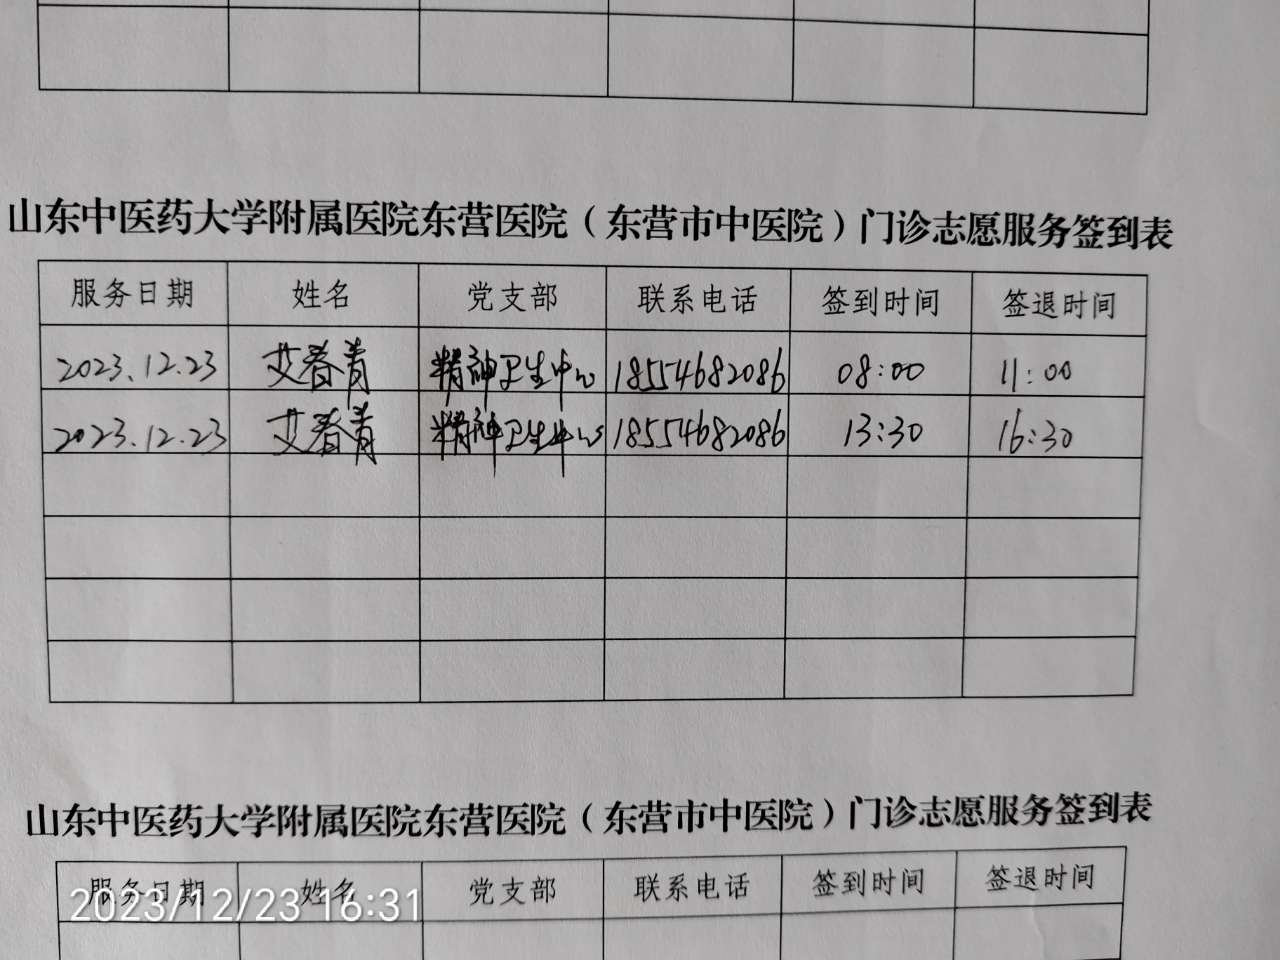 山东中医药大学附属医院东营医院（东营市中医院）门诊志愿服务签到表
服务日期 姓名 党支部 联系电话 签到时间 签退时间
2023.12.23 艾春青 精神卫生中心 18554682086 08:00 11:00
2023.12.23 艾春青 精神卫生中心 18554682086 13:30 16:30
山东中医药大学附属医院东营医院（东营市中医院）门诊志愿服务签到表
服务日期 姓名 党支部 联系电话 签到时间 签退时间
2023/12/23 16:31